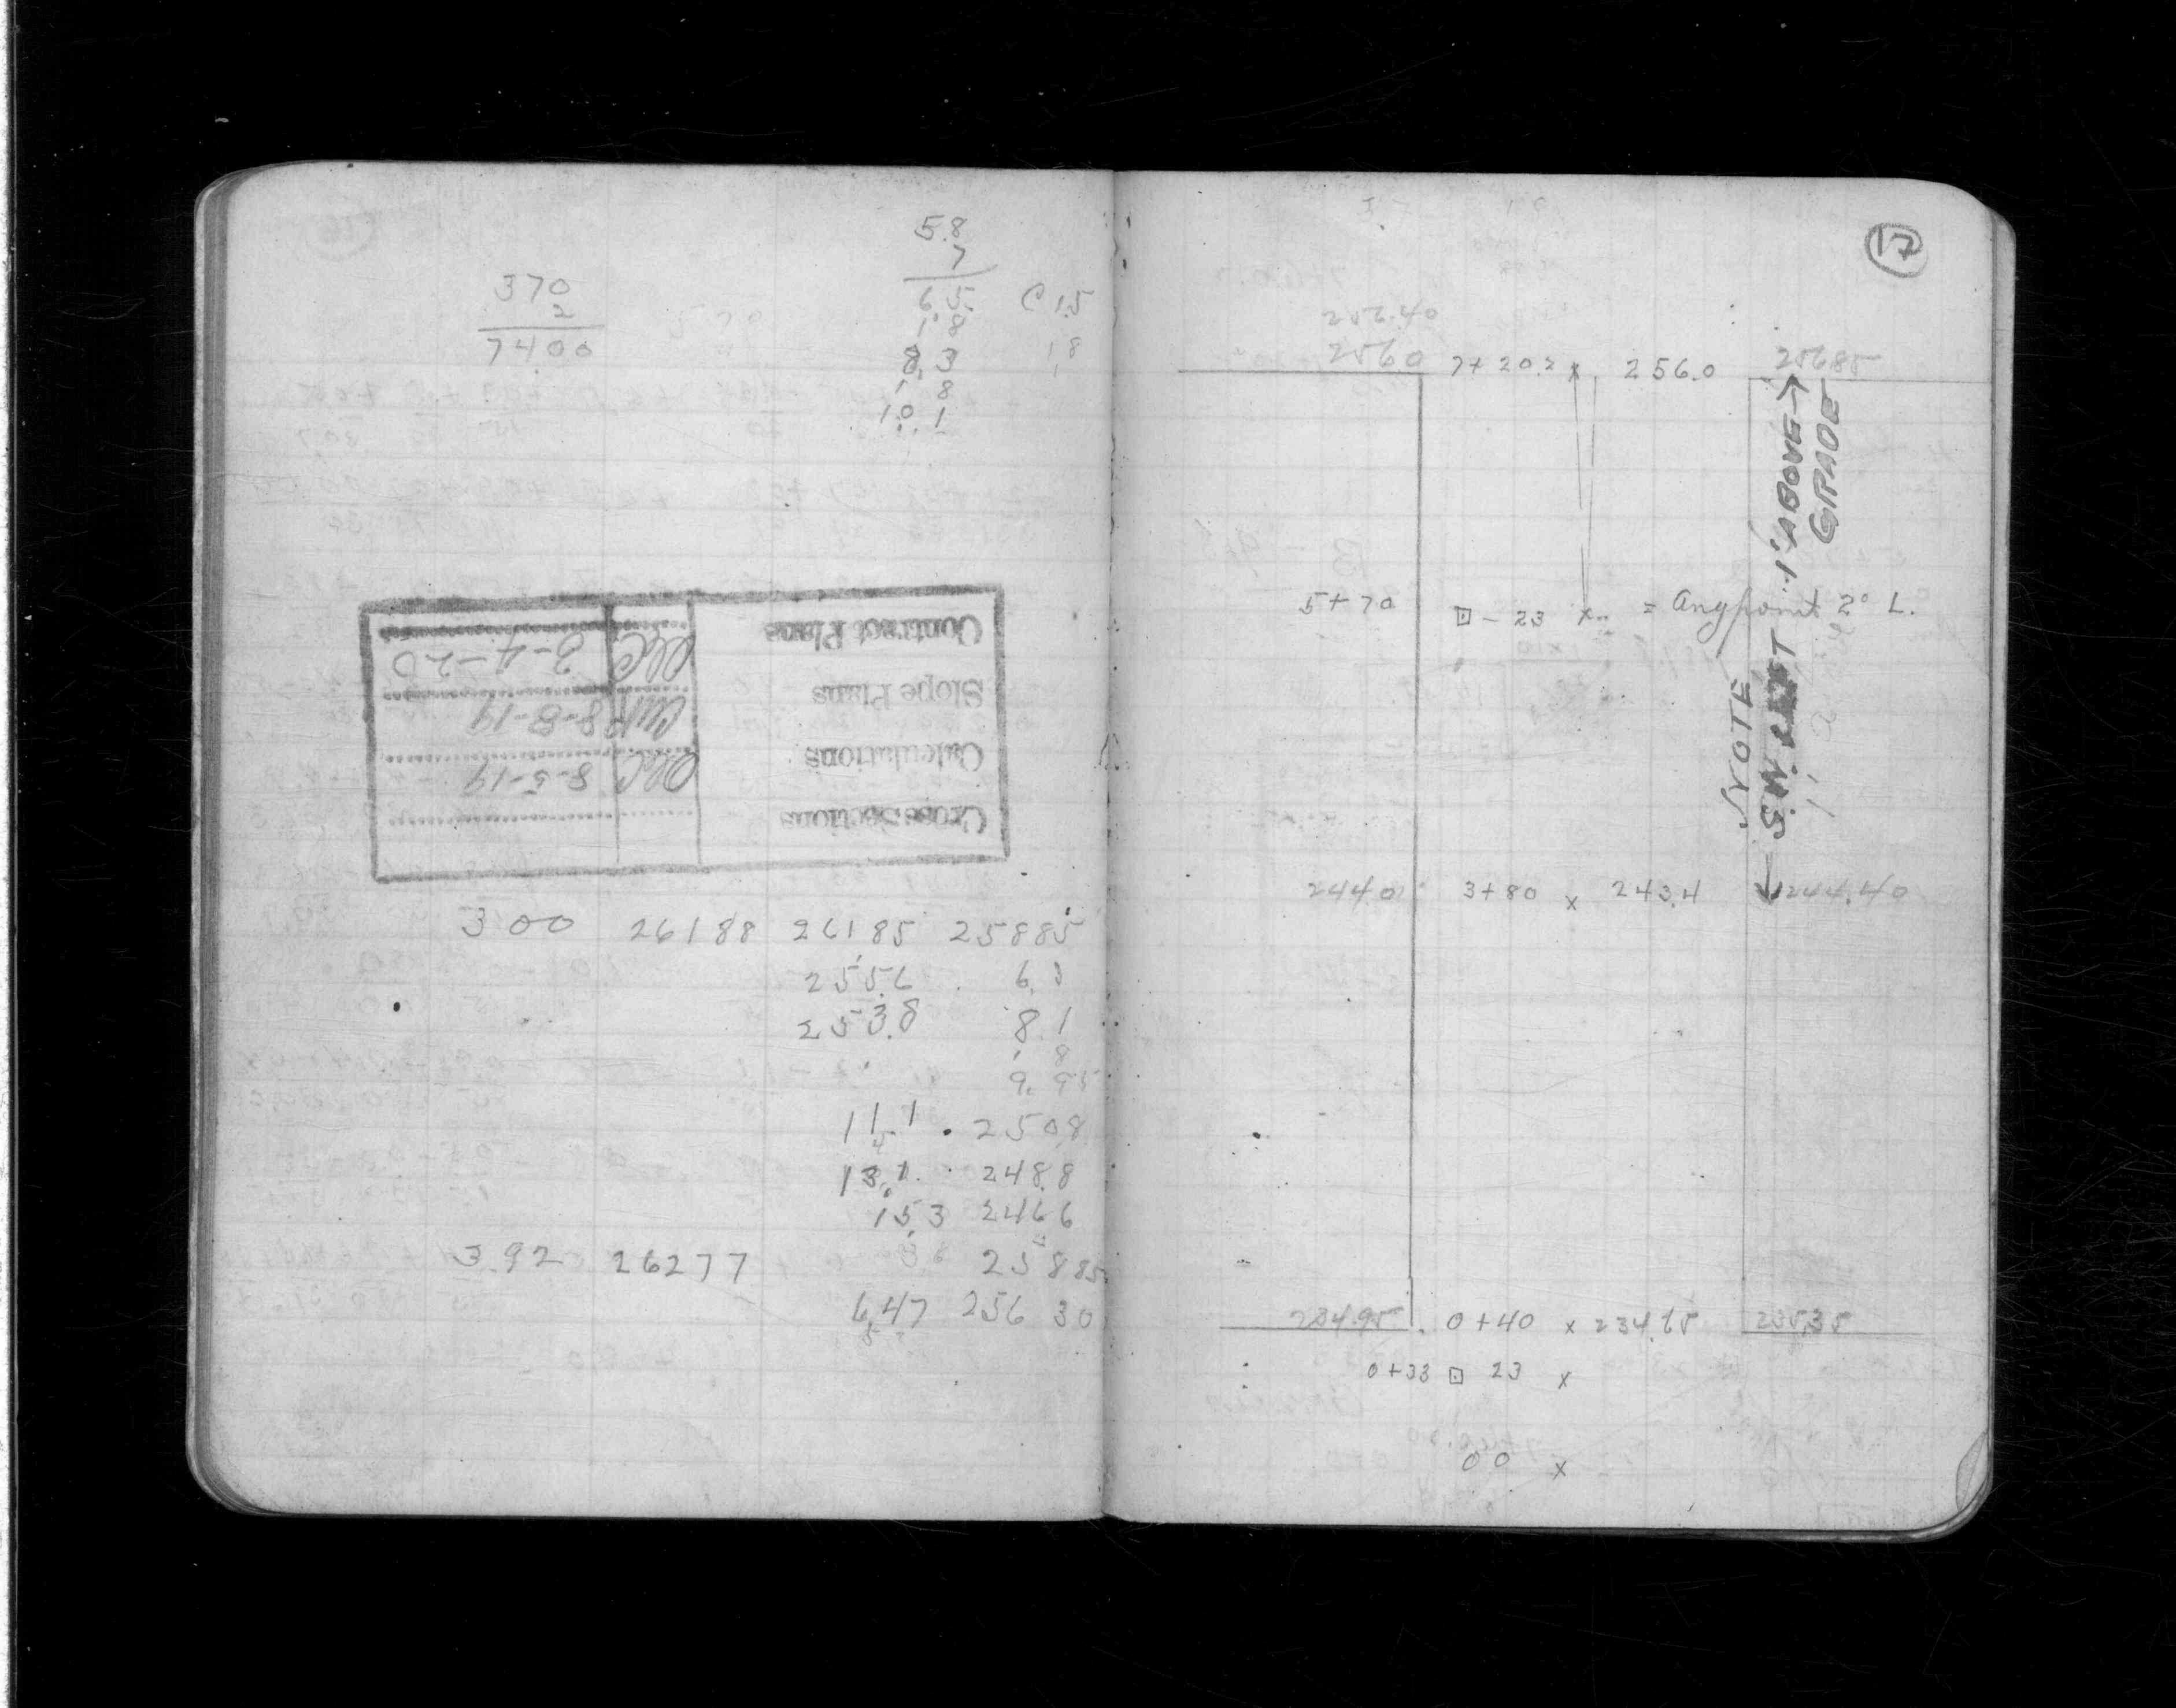 5.8
7
6.5 C 1.5
1.8 1.8
8.3
1.8
10.1
370
2
7400
Cross Sections
Calculations 8-5-19
Slope Plans 8-8-19
Contract Plans 3-4-20
300 26188 26185 25885
255.6
253.8 8.1
8
9.95
11.1 250.8
13.1 248.8
15.3 246.6
3.92 26277 25885
6.47 256 30
17
252.40
256.0 7+20.2 x 256.0 256.85
5+70 ⊡-23 x = Ang point 2° L.
NOTE
← S.W. 1' ABOVE →
GRADE
244.0 3+80 x 243.4 244.40
234.95 0+40 x 234.65 235.35
0+33 ⊡ 23 x
00 x